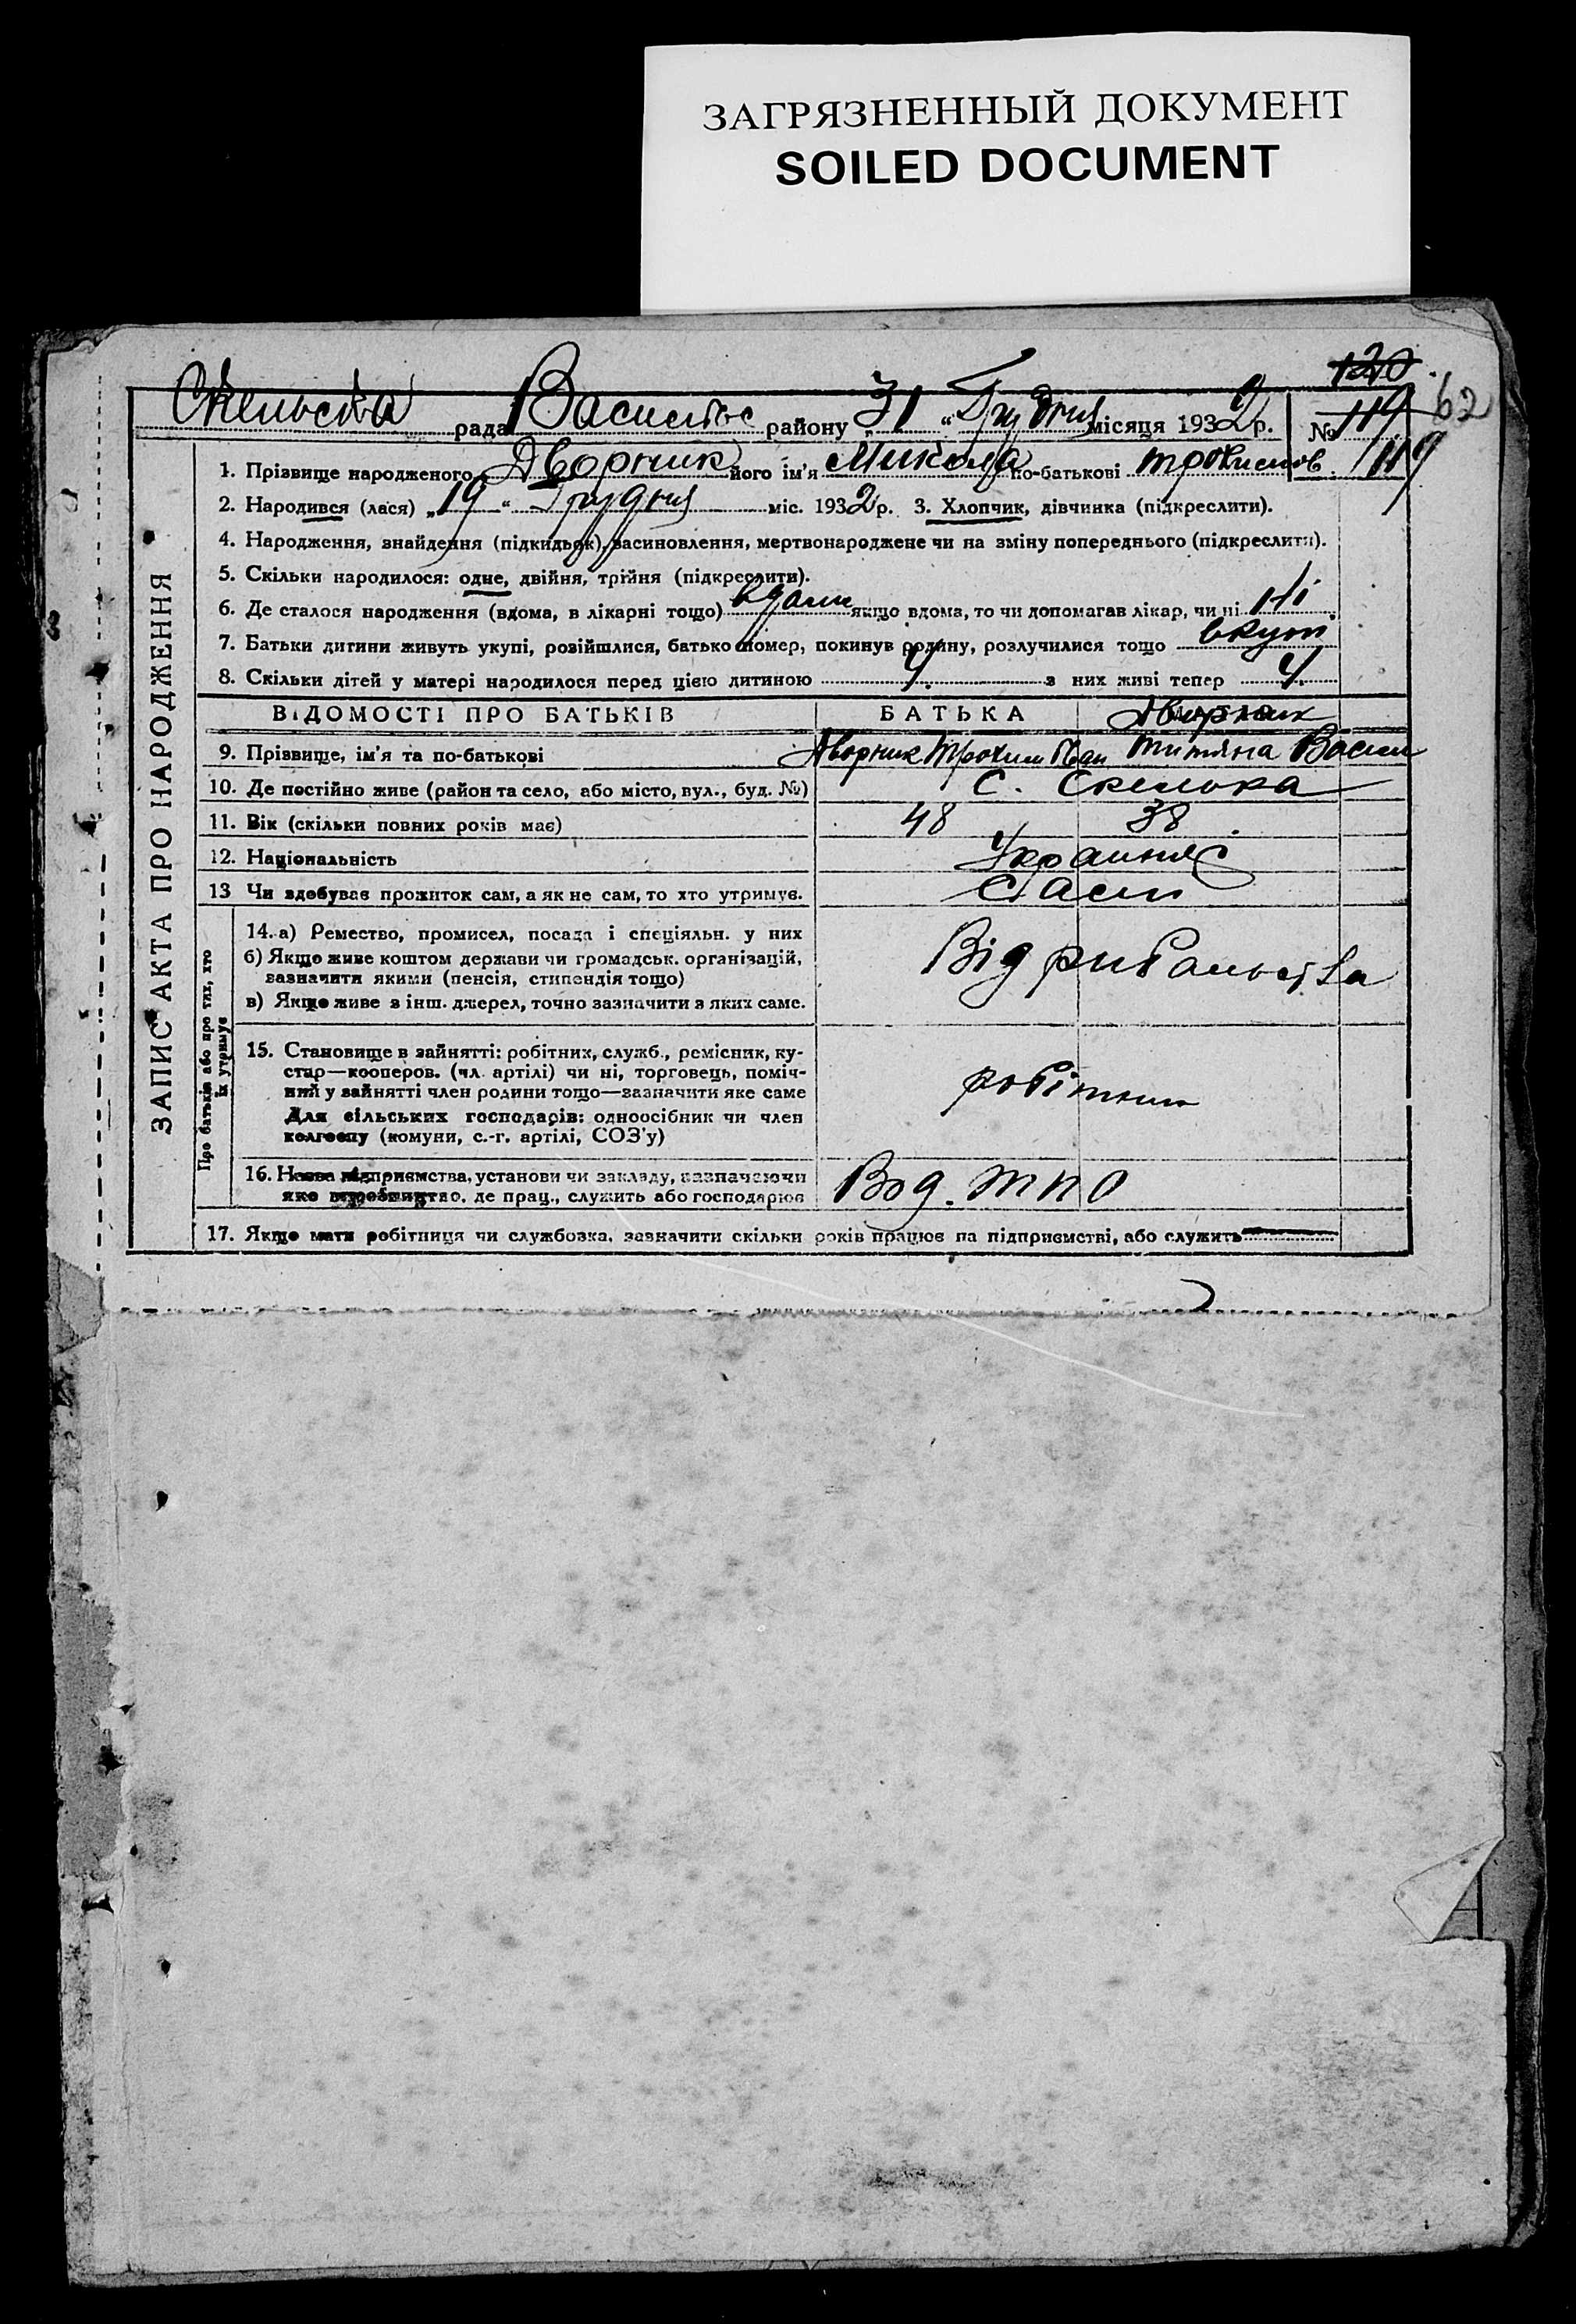 ЗАГРЯЗНЕННЫЙ ДОКУМЕНТ
SOILED DOCUMENT
120
62
рада Василівс району „31“ Грудня місяця 1932 р. № 119
1. Прізвище народженого Дворник його ім'я Микола по-батькові трохимов. 119
2. Народився (лася) „19“ Грудня міс. 1932 р. 3. Хлопчик, дівчинка (підкреслити).
4. Народження, знайдення (підкидьок), засиновлення, мертвонароджене чи на зміну попереднього (підкреслити).
5. Скільки народилося: одне, двійня, трійня (підкреслити).
6. Де сталося народження (вдома, в лікарні тощо) вдома якщо вдома, то чи допомагав лікар, чи ні Ні
7. Батьки дитини живуть укупі, розійшлися, батько помер, покинув родину, розлучилися тощо вкуп
8. Скільки дітей у матері народилося перед цією дитиною 4. з них живі тепер 4.
ВІДОМОСТІ ПРО БАТЬКІВ БАТЬКА Дворник
9. Прізвище, ім'я та по-батькові Дворник Трохим Іван Титяна Васил
10. Де постійно живе (район та село, або місто, вул., буд. №) С. Скелька
11. Вік (скільки повних років має) 48 38
12. Національність
13 Чи здобуває прожиток сам, а як не сам, то хто утримує. Сами
14. а) Ремество, промисел, посада і спеціяльн. у них
б) Якщо живе коштом держави чи громадськ. організацій,
зазначити якими (пенсія, стипендія тощо)
в) Якщо живе з інш. джерел, точно зазначити з яких саме.
Від рибальства
15. Становище в зайнятті: робітник, служб., ремісник, ку-
стар—кооперов. (чл. артілі) чи ні, торговець, поміч-
ний у зайнятті член родини тощо—зазначити яке саме
Для сільських господарів: одноосібник чи член
колгоспу (комуни, с.-г. артілі, СОЗ'у)
робітник
16. Назва підприємства, установи чи закладу, зазначаючи
яке виробництво, де прац., служить або господарює
Вод. ТПО
17. Якщо мати робітниця чи службовка, зазначити скільки років працює на підприємстві, або служить
ЗАПИС АКТА ПРО НАРОДЖЕННЯ
Про батьків або про тих, хто
їх утримує